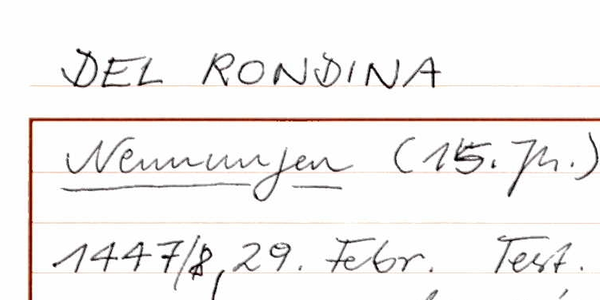 DEL RONDINA
Nennungen (15. Jh.)
1447/8, 29. Febr. Test.